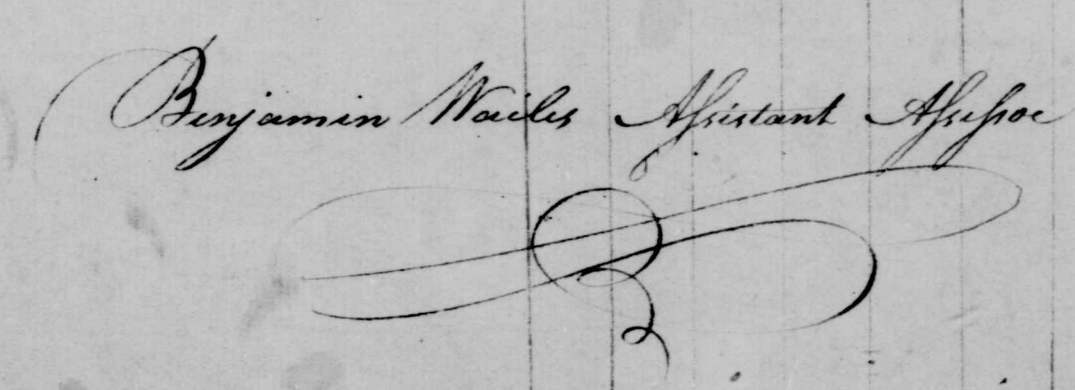 Benjamin Wailes Assistant Assessor